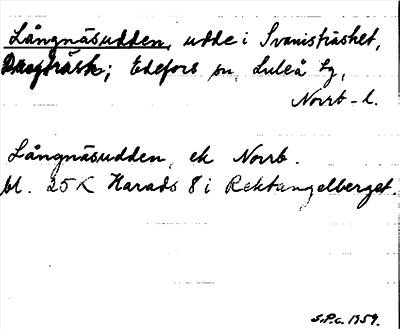 Långnäsudden, udde i Svanisträsket,
träsk; Edefors sn, Luleå tg,
Norrb-l.
Långnäsudden, ek Norrb.
bl. 25K Harads 8 i Rektangelberget.
S.P.c. 1959.